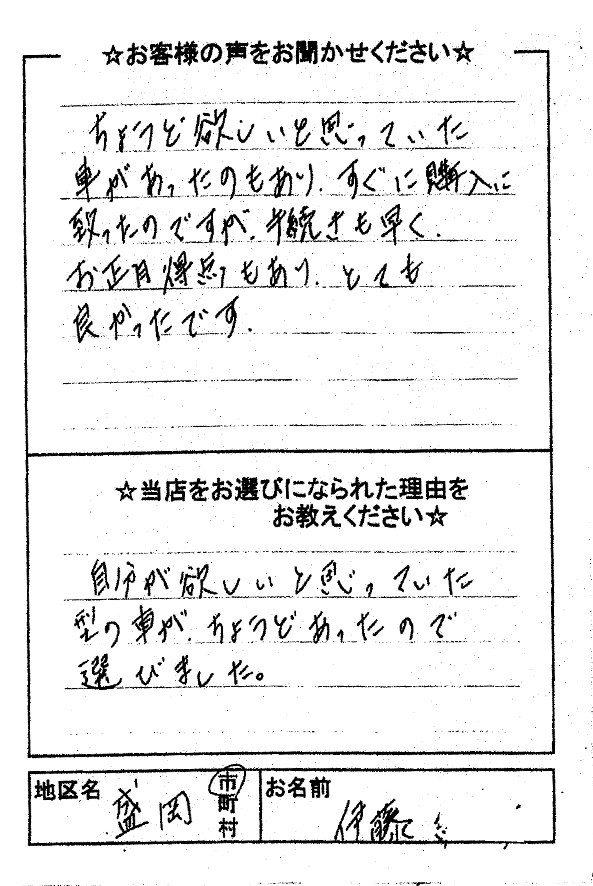 ☆お客様の声をお聞かせください☆
ちょうど欲しいと思っていた
車があったのもあり、すぐに購入に
致ったのですが、手続きも早く、
お正月得点もあり、とても
良かったです。
☆当店をお選びになられた理由を
お教えください☆
自分が欲しいと思っていた
型の車が、ちょうどあったので
選びました。
地区名 盛岡 市町村 お名前 伊藤